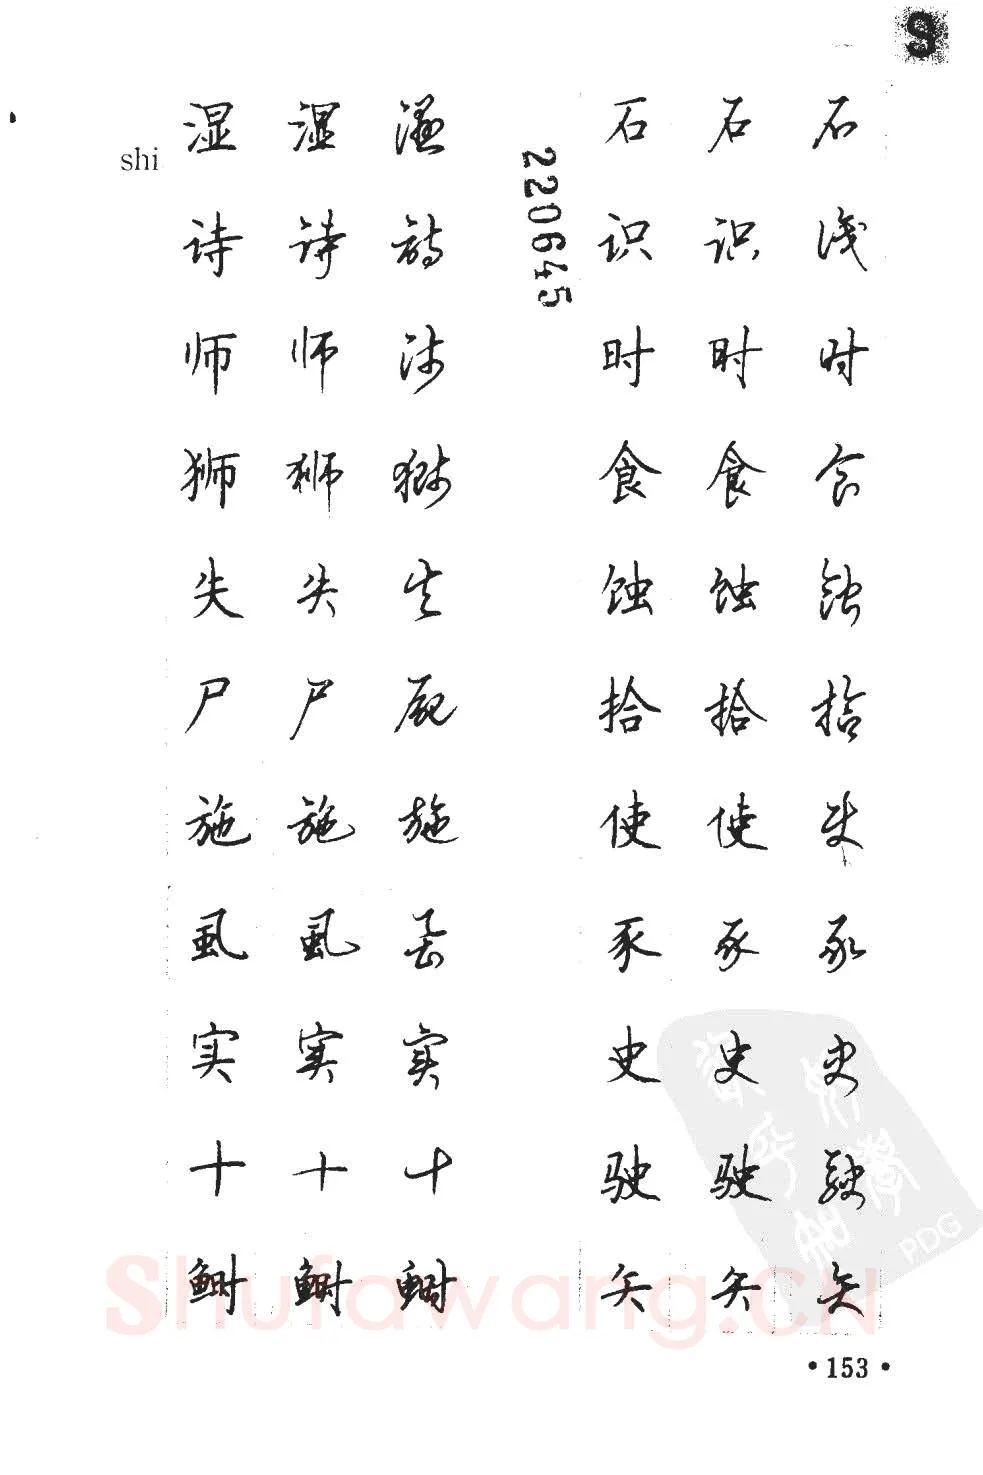 S
shi
湿 湿 湿 石 石 石
诗 诗 诗 识 识 识
师 师 师 时 时 时
狮 狮 狮 食 食 食
失 失 失 蚀 蚀 蚀
尸 尸 屍 拾 拾 拾
施 施 施 使 使 使
虱 虱 虱 豕 豕 豕
实 实 实 史 史 史
十 十 十 驶 驶 驶
鲥 鲥 鲥 矢 矢 矢
220645
Shufawang.CN
PDG
•153•